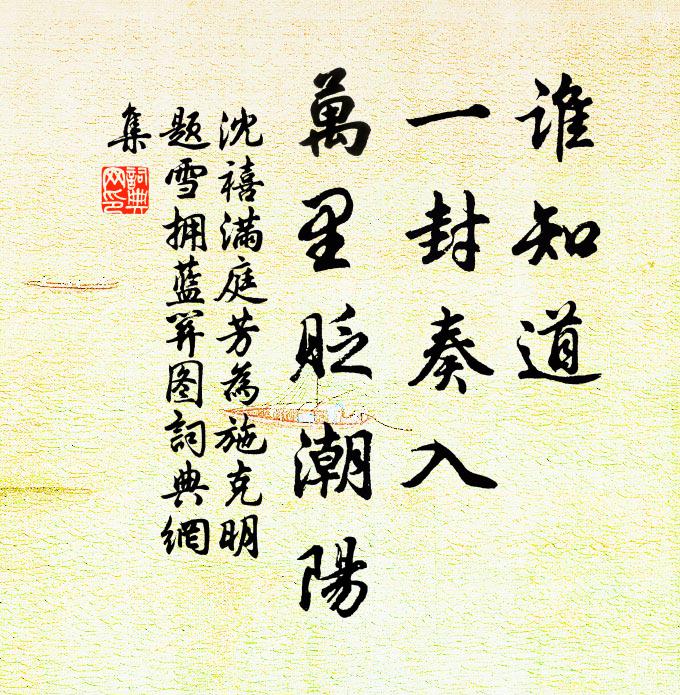 谁知道
一封奏入
萬里贬潮陽
沈禧满庭芳為施克明
题雪拥蓝関图詞典網
集
詞典
网印